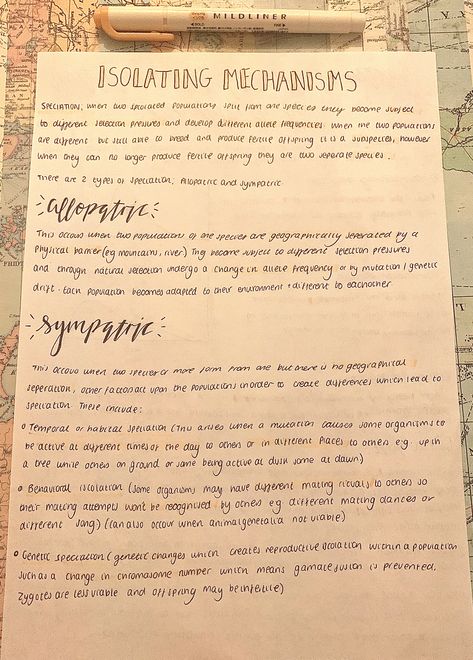 MILDLINER
BOLD
FINE
ISOLATING MECHANISMS
SPECIATION, when two isolated populations split from one species they become subject
to different selection pressures and develop different allele frequencies. When the two populations
are different but still able to breed and produce fertile offspring it is a subspecies, however
when they can no longer produce fertile offspring they are two separate species.
There are 2 types of speciation, Allopatric and sympatric.
allopatric:
This occurs when two populations of one species are geographically seperated by a
physical barrier (eg mountains, river) They become subject to different selection pressures
and through natural selection undergo a change in allele frequency or by mutation / genetic
drift. Each population becomes adapted to their environment + different to eachother
sympatric:
This occurs when two species or more form from one but there is no geographical
seperation, other factors act upon the populations inorder to create differences which lead to
speciation. These include:
o Temporal or habitat speciation (This arises when a mutation causes some organisms to
be active at different times of the day to others or in different places to others e.g. up in
a tree while others on ground or some being active at dusk some at dawn)
o Behavioral isolation (some organisms may have different mating rituals to others so
their mating attempts won't be recognised by others e.g. different mating dances or
different song) (can also occur when animal genetalia not viable)
o Genetic speciation (genetic changes which creates reproductive isolation within a population
such as a change in chromasome number which means gamate fusion is prevented,
zygotes are less viable and offspring may be infertile)